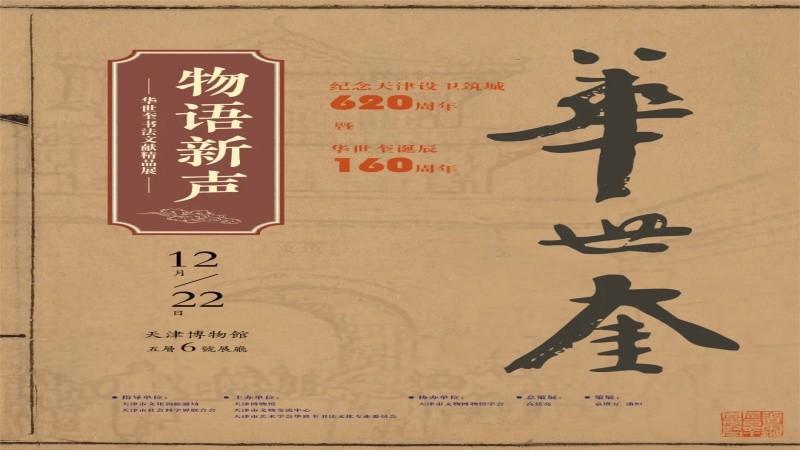 物语新声
华世奎书法文献精品展
纪念天津设卫筑城
620周年
暨
华世奎诞辰
160周年
華世奎
12月
22日
天津博物館
五層6號展廳
指导单位：
天津市文化和旅游局
天津市社会科学界联合会
主办单位：
天津博物馆
天津市文物交流中心
天津市艺术学会华世奎书法文化专业委员会
协办单位：
天津市文物博物馆学会
总策展：
策展：